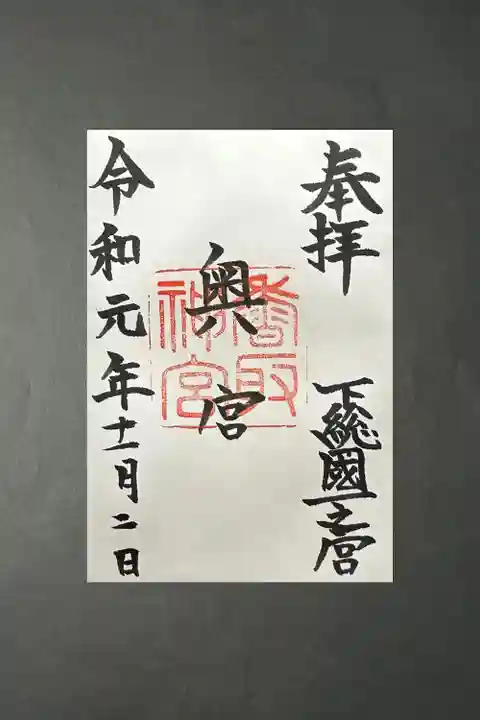 奉拝
下総國一之宮
奥宮
香取神宮
令和元年十一月二日